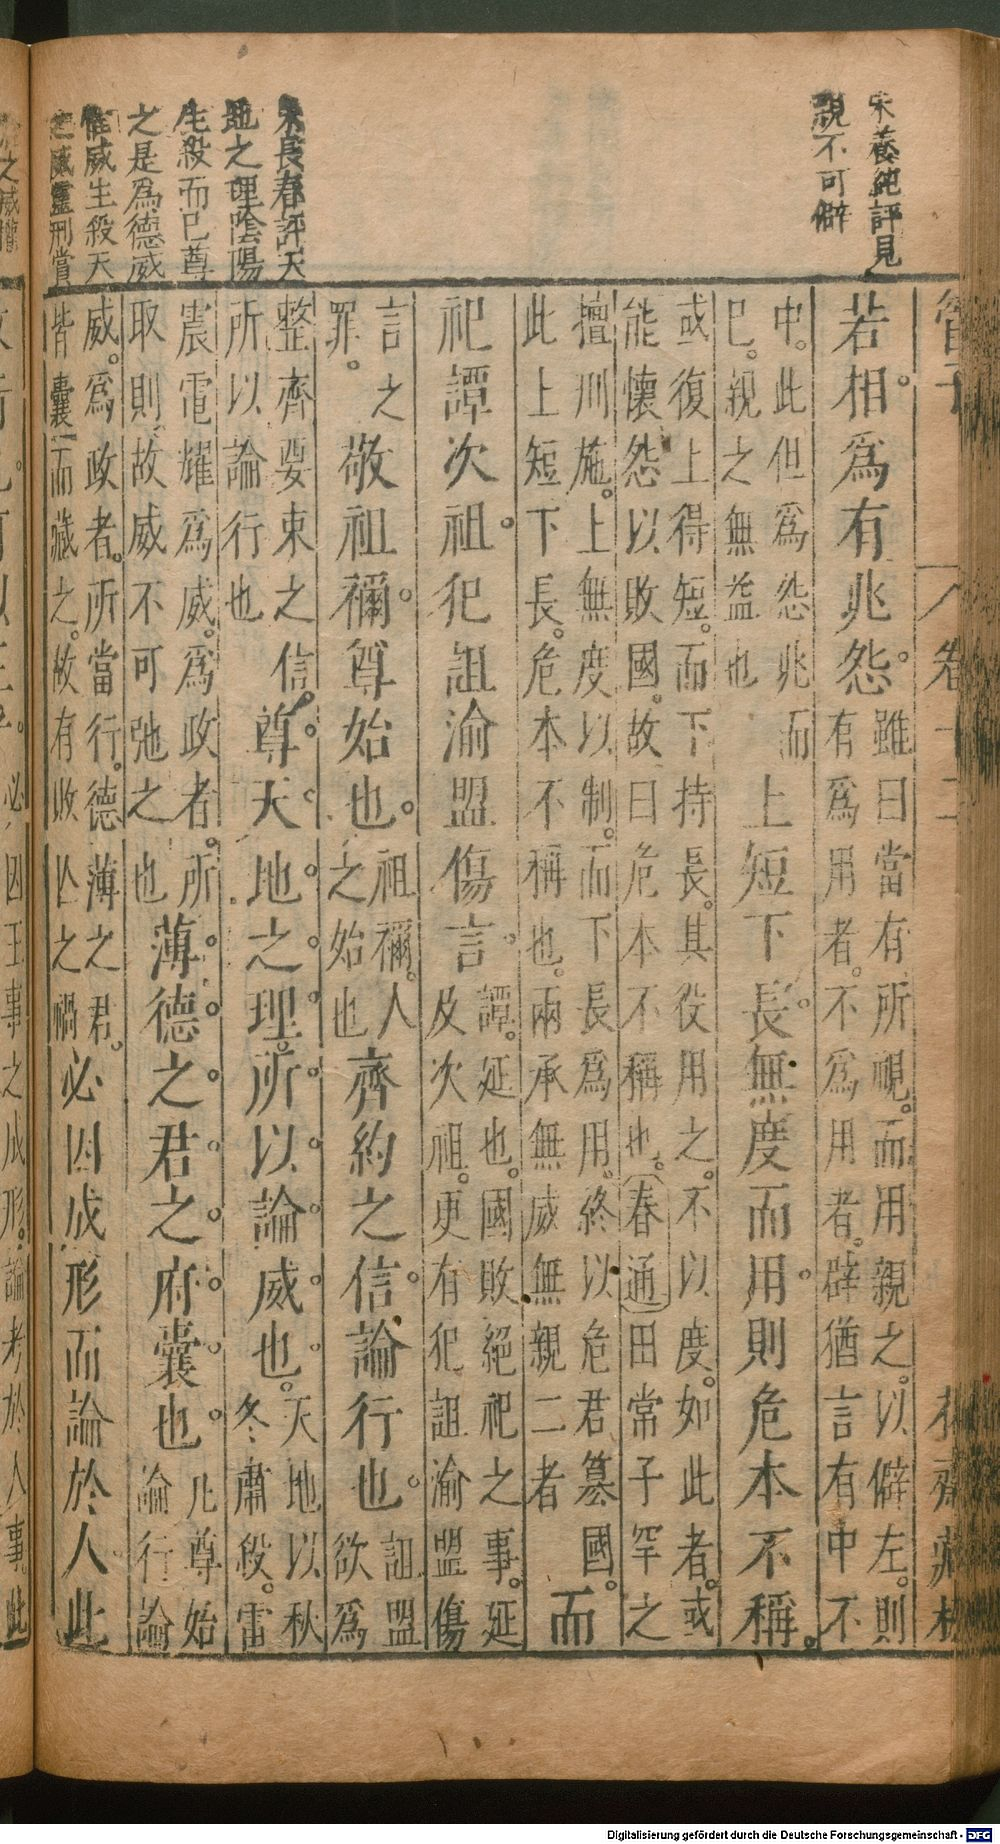 朱養純評見
親不可僻
朱長春評天
地之理陰陽
生殺而已尊
之是爲德威
惟威生殺天
之威靈刑賞
管子
卷十二
花齋藏板
若相爲有兆怨。
雖曰當有所視。而用親之。以僻左。則
有爲用者。不爲用者。辟猶言有中不
中。此但爲怨兆而
已。親之無益也
上短下長。無度而用。則危本不稱。
或復上得短。而下持長。其役用之。不以度。如此者。或
能懷怨以敗國。故曰危本不稱也。春通田常子罕之
擅刑施。上無度以制。而下長爲用。終以危君篡國。
此上短下長。危本不稱也。兩承無威無親二者
而
祀譚次祖。犯詛渝盟傷言。
譚。延也。國敗絕祀之事。延
及次祖。更有犯詛渝盟傷
言之
罪。
敬祖禰。尊始也。
祖禰。人
之始也
齊約之信。論行也。
詛盟
欲爲
整齊要束之信。
所以論行也
尊天地之理。所以論威也。
天地以秋
冬肅殺。雷
震電耀爲威。爲政者。所
取則故威不可弛之也
薄德之君之府囊也。
凡尊始
論行論
威。爲政者。所當行。德薄之君。
皆囊而藏之。故有敗亾之禍
必因成形而論於人此
必因王事之成形。論考於人事。此
Digitalisierung gefördert durch die Deutsche Forschungsgemeinschaft - DFG